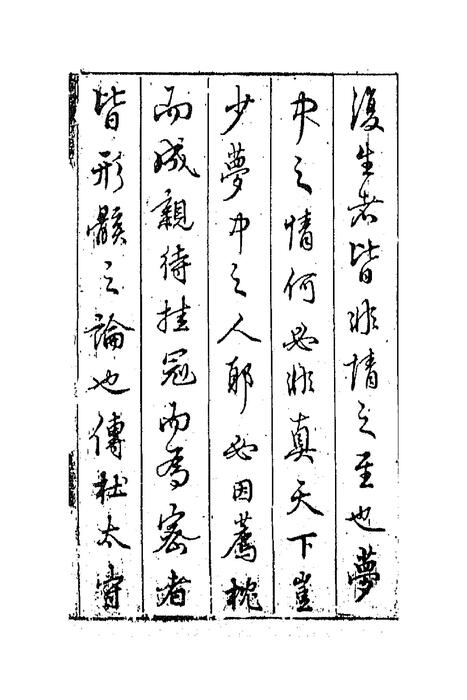 復生者皆非情之至也夢
中之情何必非真天下豈
少夢中之人耶必因薦枕
而成親待挂冠而爲密者
皆形骸之論也傳杜太守